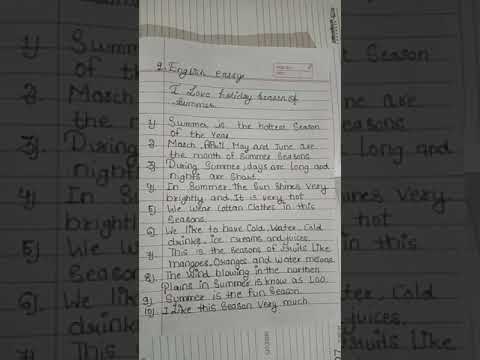 2. English essay
I Love holiday season of
summer
1) Summer is the hottest Season
of the Year
2. March, April, May and June are
the month of Summer Seasons
3) During Summer, days are long and
nights are Short.
4) In Summer the Sun Shines Very
brightly and It is very hot
5) We wear Cotton Clothes in this
Seasons.
6) We like to have Cold, Water, Cold
drinks, ice creams and juices.
7) This is the Seasons of fruits like
mangoes, Oranges and Water melons
8). The Wind blowing in the northen
Plains in Summer is know as Loo.
9) Summer is the fun Season
10) I Like this Season Very much.